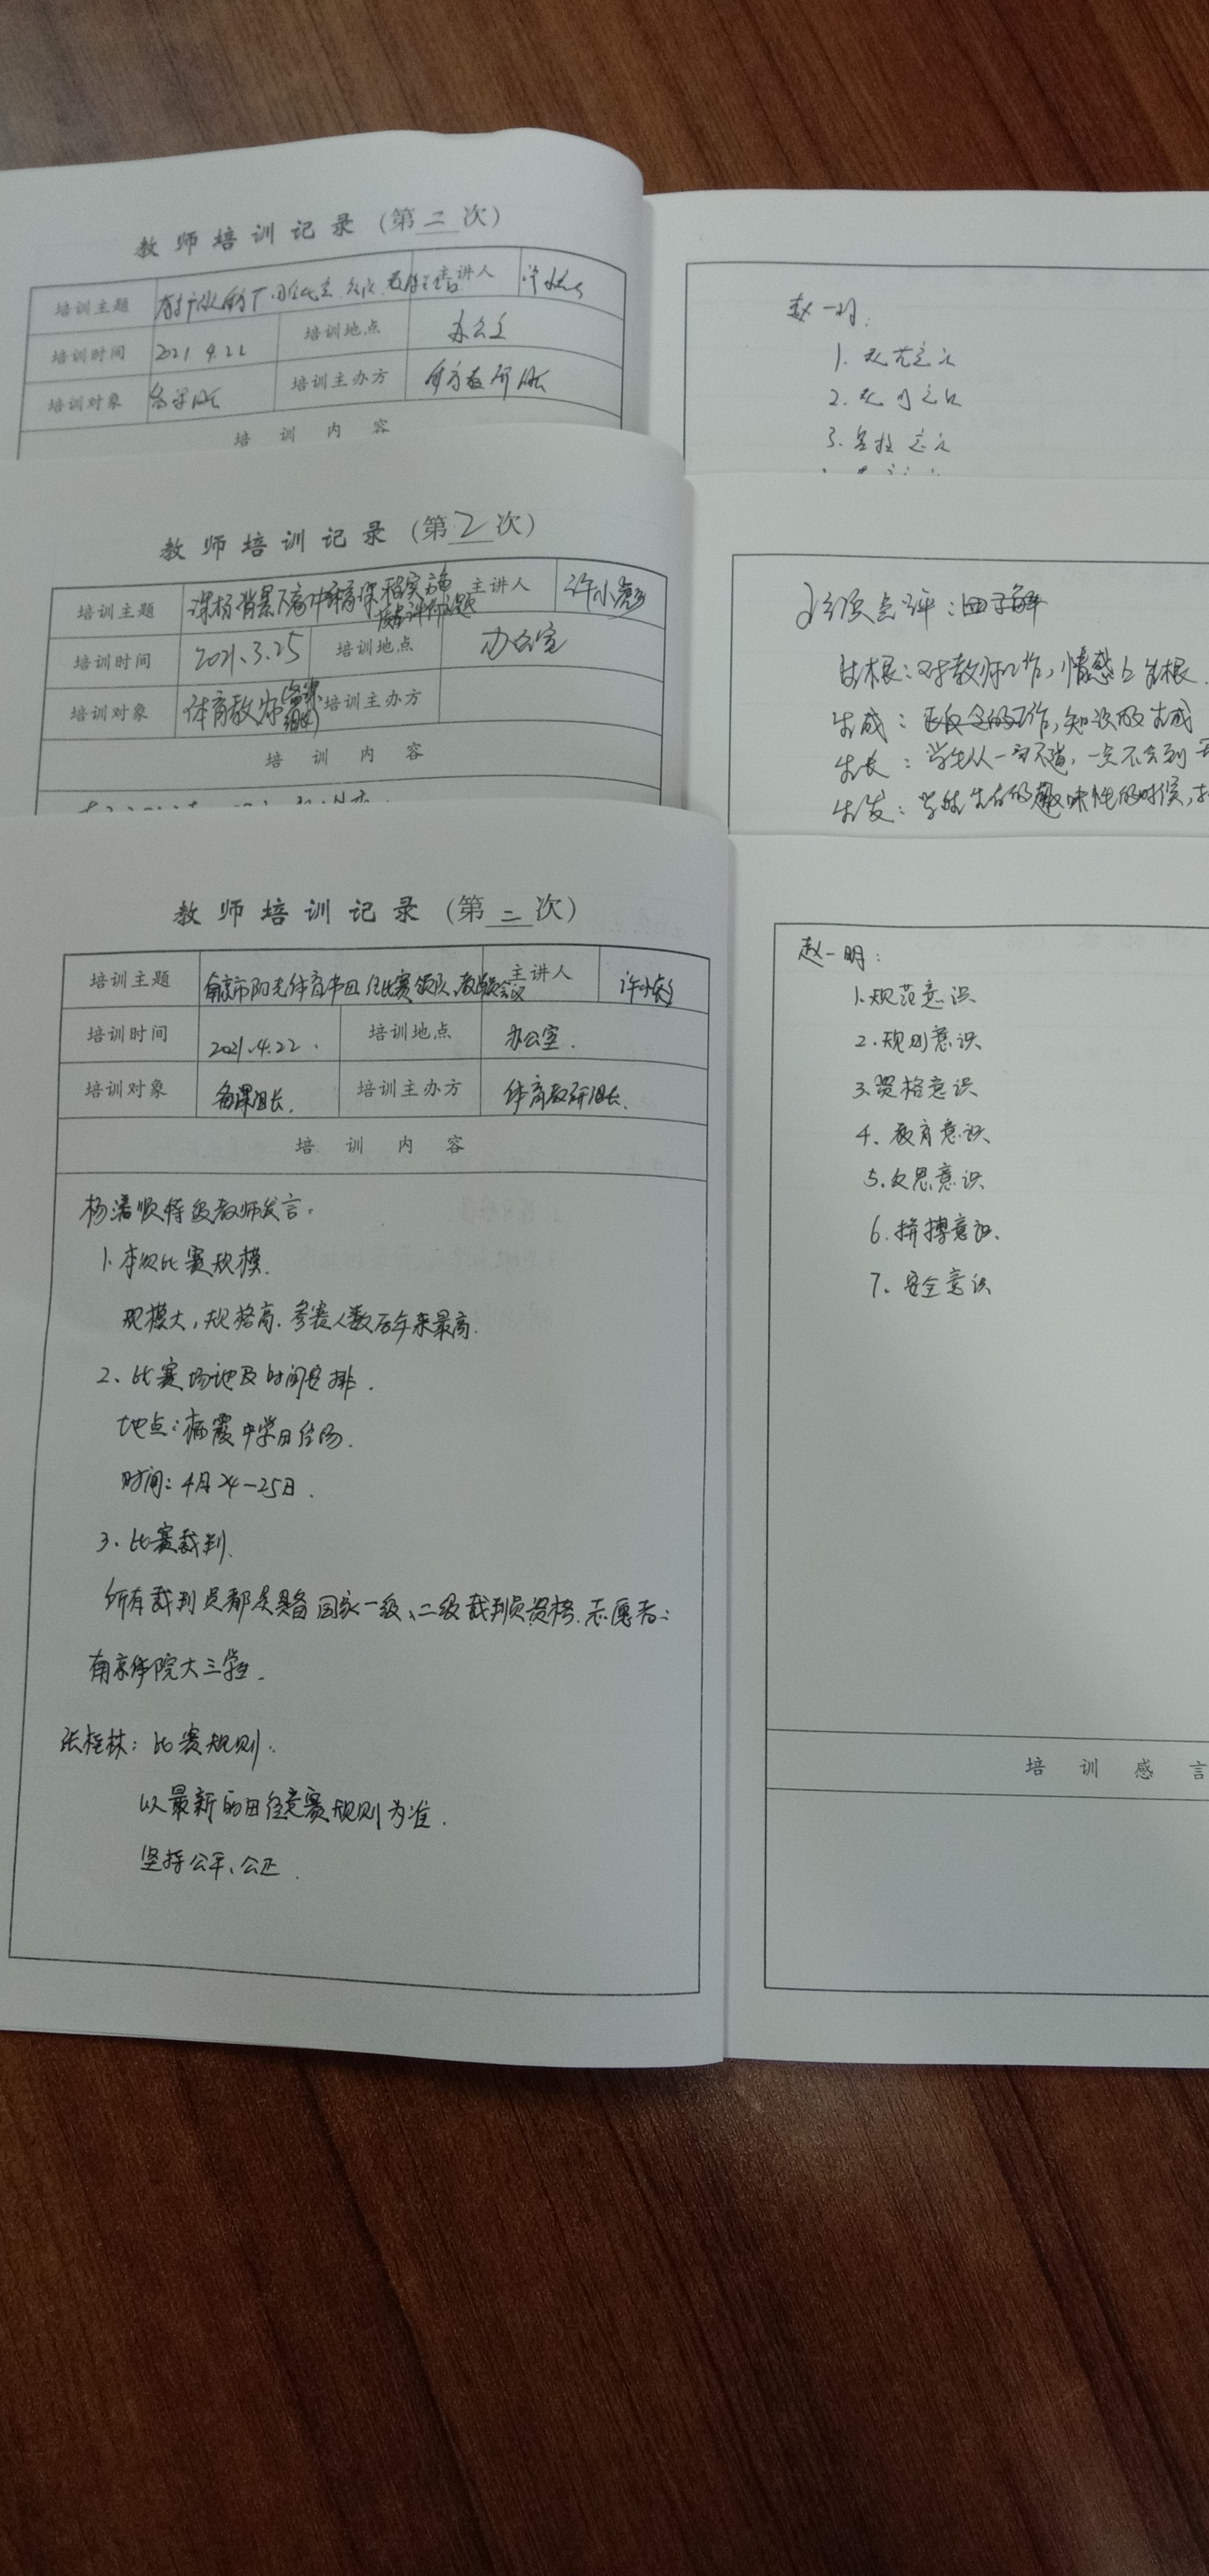 教师培训记录（第二次）
培训主题 主讲人
培训时间 2021 4.22 培训地点 办公室
培训对象 备课组长 培训主办方 体育教研组长
培训内容
赵一明：
1.规范意识
2.规则意识
3.资格意识
教师培训记录（第2次）
培训主题 课标背景下高中体育课程实施 主讲人 许小彪
培训时间 2021.3.25 培训地点 办公室
培训对象 体育教师(备课组长) 培训主办方
培训内容
点评：四了解
生根：对教师工作，情感上生根.
生成：工作，知识的生成
生长：学生从一窍不通，一点不会到
生发：趣味性的时候，
教师培训记录（第二次）
培训主题 南京市阳光体育节田径比赛领队、教练员会议 主讲人 许小彪
培训时间 2021.4.22. 培训地点 办公室.
培训对象 备课组长. 培训主办方 体育教研组长.
培训内容
特级教师发言.
1.本次比赛规模.
规模大，规格高.参赛人数历年来最高.
2、比赛场地及时间安排.
地点：栖霞中学田径场.
时间：4月24-25日.
3、比赛裁判.
所有裁判员都是具备国家一级、二级裁判员资格.志愿者：
南京体院大三学生.
张桂林：比赛规则.
以最新的田径竞赛规则为准.
坚持公平、公正.
赵一明：
1.规范意识
2.规则意识
3.资格意识
4、教育意识
5.反思意识
6.拼搏意识.
7.安全意识
培训感言